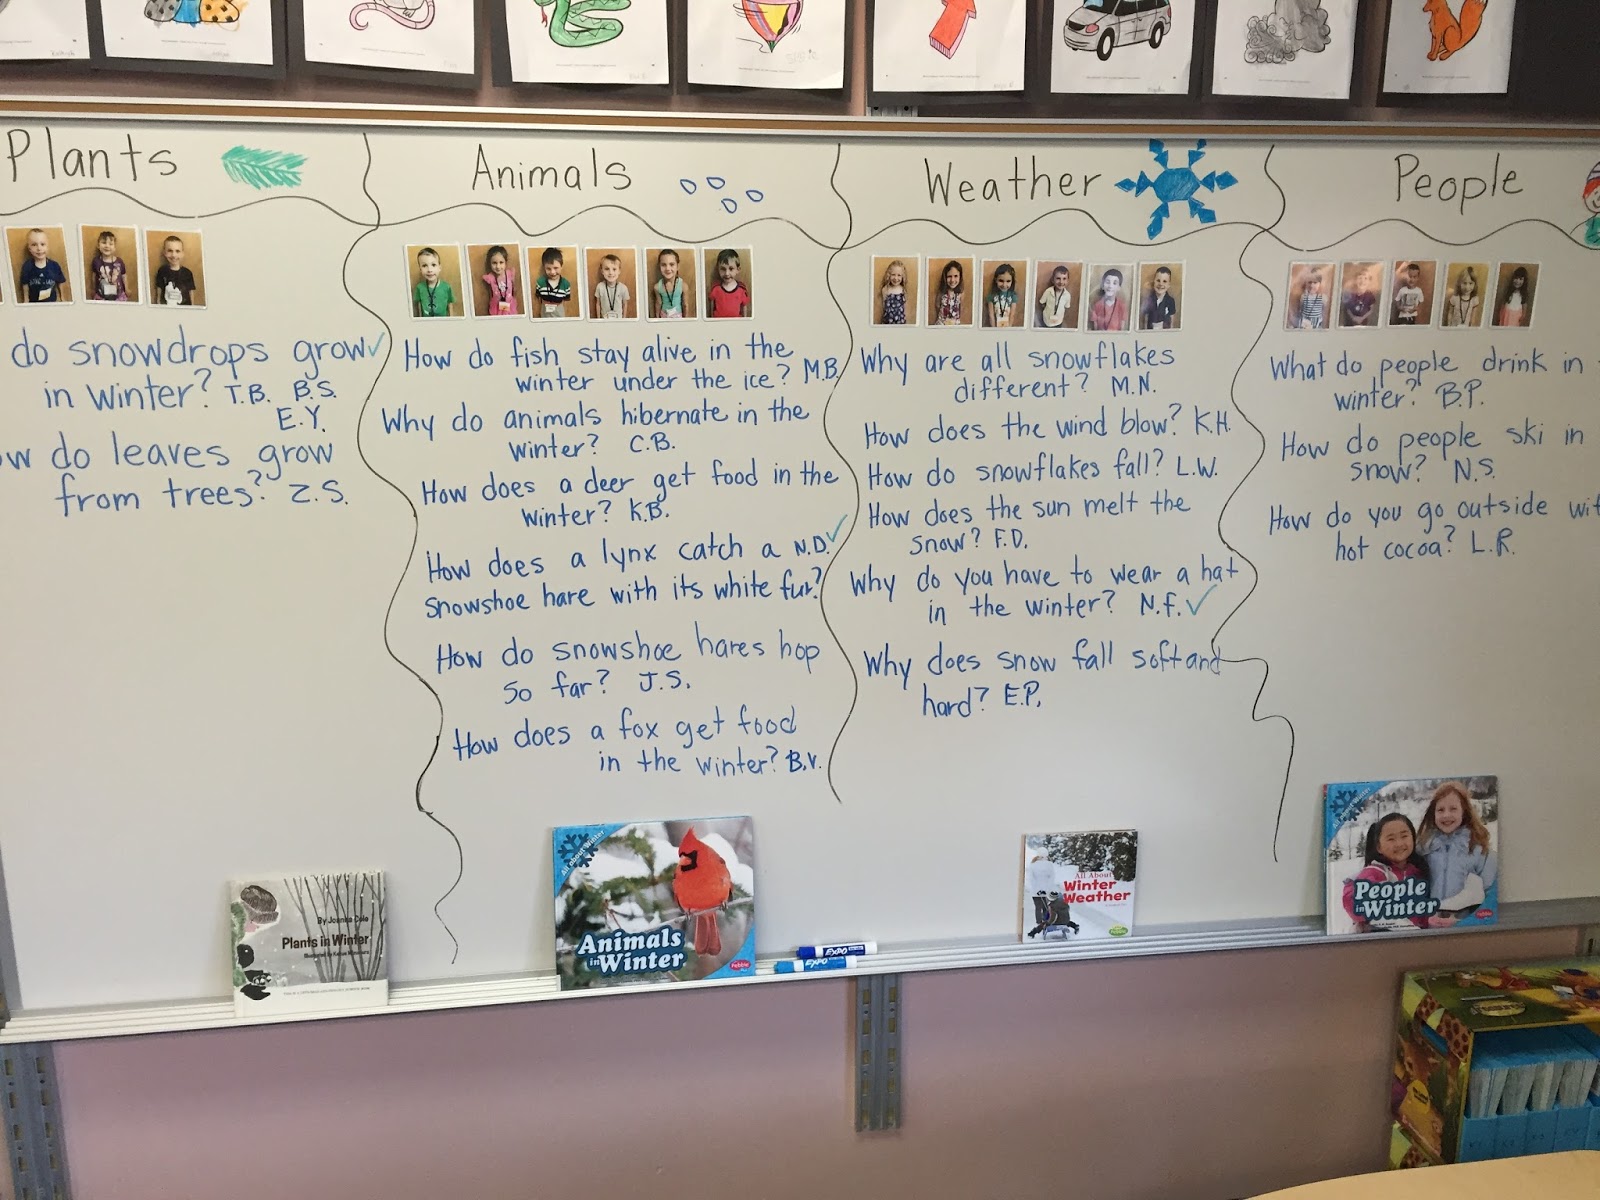 Plants
do snowdrops grow✓
in winter? T.B. B.S.
E.Y.
ow do leaves grow
from trees? Z.S.
Animals
How do fish stay alive in the
winter under the ice? M.B.
Why do animals hibernate in the
winter? C.B.
How does a deer get food in the
winter? K.B.
How does a lynx catch a N.D.✓
snowshoe hare with its white fur?
How do snowshoe hares hop
so far? J.S.
How does a fox get food
in the winter? B.V.
Weather
Why are all snowflakes
different? M.N.
How does the wind blow? K.H.
How do snowflakes fall? L.W.
How does the sun melt the
snow? F.D.
Why do you have to wear a hat
in the winter? N.F.✓
Why does snow fall soft and
hard? E.P.
People
What do people drink in
winter? B.P.
How do people ski in
snow? N.S.
How do you go outside wit
hot cocoa? L.R.
By Joanna Cole
Plants in Winter
All About Winter
Animals
in Winter
Pebble
EXPO
EXPO
All About
Winter
Weather
All About Winter
People
in Winter